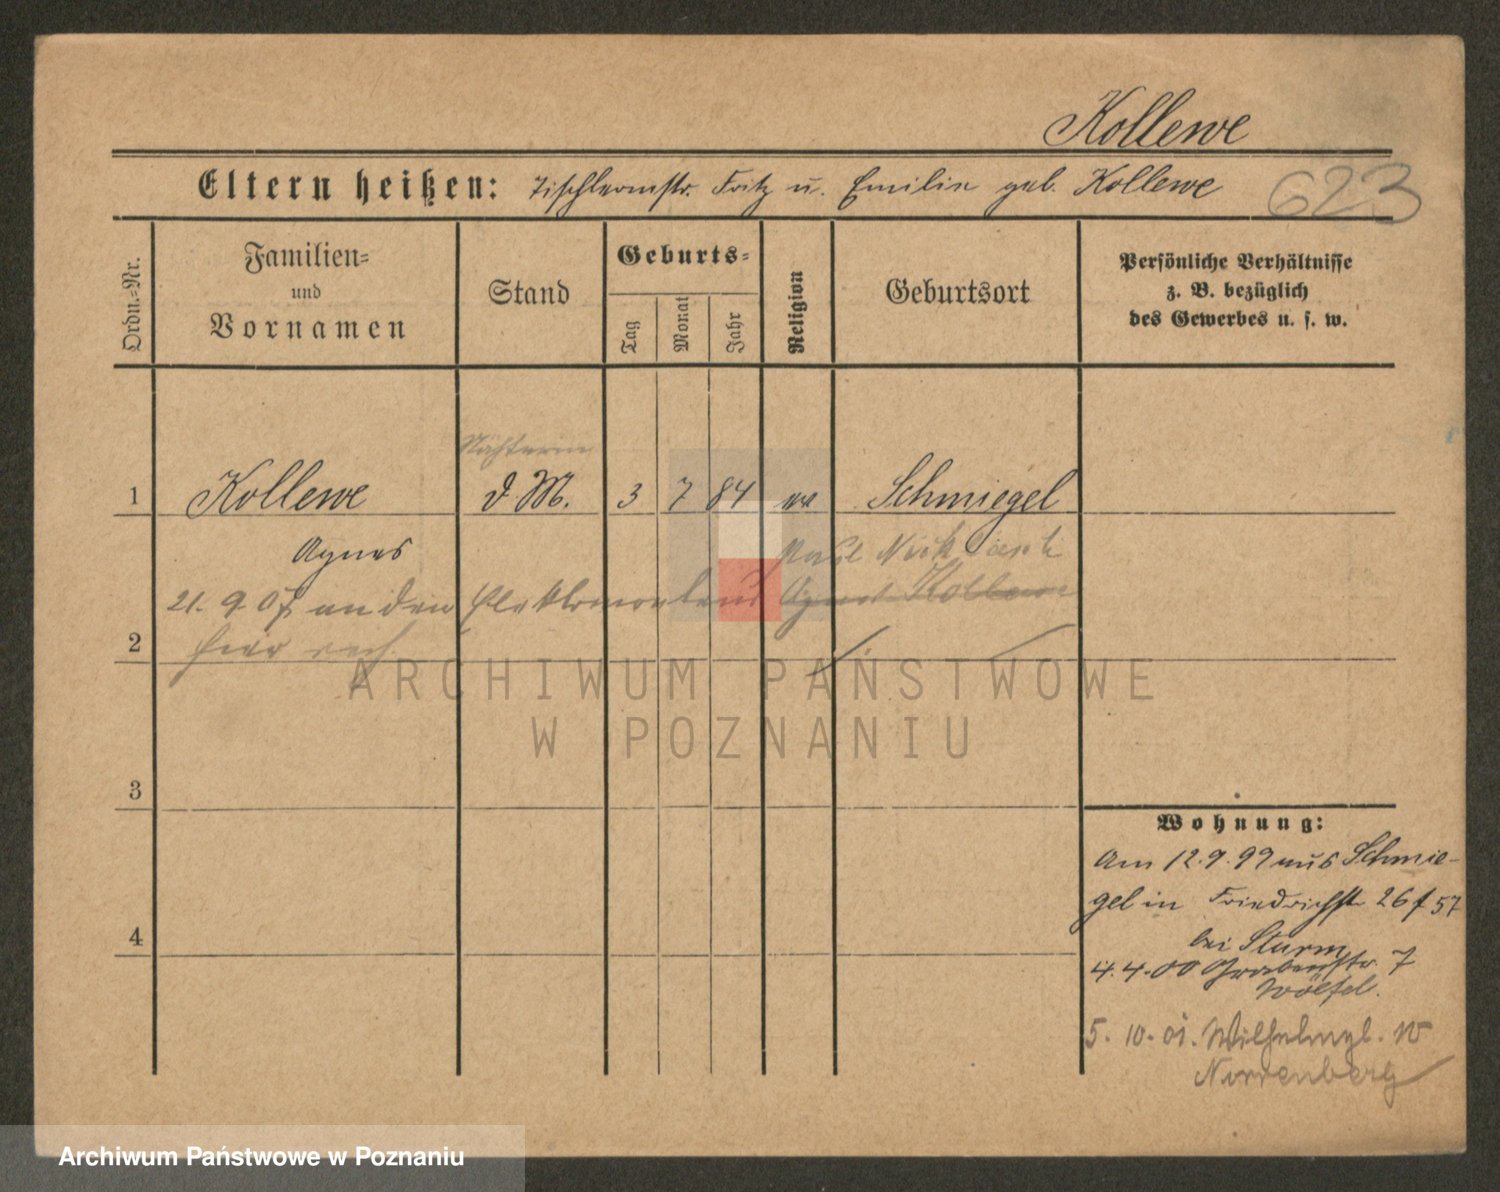 Kollewe
Eltern heißen: Tischlermstr. Fritz u. Emilie geb. Kollewe
623
Ordn.-Nr.
Familien-
und
Vornamen
Stand
Geburts-
Tag
Monat
Jahr
Religion
Geburtsort
Persönliche Verhältnisse
z. B. bezüglich
des Gewerbes u. s. w.
Nähterin
1 Kollewe d. M. 3 7 84 ev Schmiegel
Agnes
Paul
21. 9 07 an den Agnes Kollewe
2 hier
ARCHIWUM PAŃSTWOWE
W POZNANIU
3
4
Wohnung:
Am 12.9.99 aus Schmie-
gel in Friedrichstr 26 f 57
bei Sturm
4.4.00 Grabenstr. 7
Wölfel.
5. 10. 01. Wilhelmpl. 10
Norrenberg
Archiwum Państwowe w Poznaniu